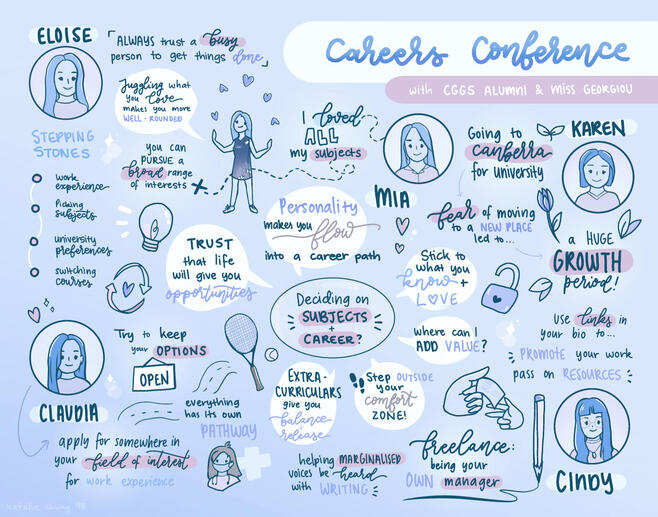 Careers Conference
with CGGS ALUMNI & MISS GEORGIOU
ELOISE
ALWAYS trust a busy
person to get things done
Juggling what
you love
makes you more
WELL-ROUNDED
you can
PURSUE a
broad range
of interests
STEPPING
STONES
work
experience
Picking
subjects
university
preferences
switching
courses
I loved
ALL
my subjects
MIA
Personality
makes you flow
into a career path
Going to
Canberra
for university
KAREN
fear of moving
to a NEW PLACE
led to...
a HUGE
GROWTH
period!
TRUST
that life
will give you
opportunities
Deciding on
SUBJECTS
+
CAREER?
Stick to
what you
know +
LOVE
where can I
ADD VALUE?
use links in
your bio to...
PROMOTE your work
pass on RESOURCES
CLAUDIA
Try to keep
your OPTIONS
OPEN
everything
has its own
PATHWAY
apply for somewhere in
your field of interest
for work experience
EXTRA-
CURRICULARS
give you
balance +
release
Step OUTSIDE
your
comfort
ZONE!
helping MARGINALISED
voices be heard
with WRITING
freelance:
being your
OWN manager
CINDY